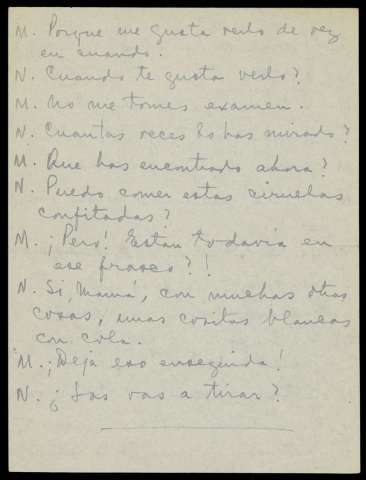 M. Porque me gusta verlo de vez
en cuando.
N. Cuando te gusta verlo?
M. No me tomes examen.
N. Cuantas veces lo has mirado?
M. Que has encontrado ahora?
N. Puedo comer estas ciruelas
confitadas?
M. ¡Pero! Estan todavía en
ese frasco?!
N. Si, Mamá, con muchas otras
cosas, unas cositas blancas
con cola.
M. ¡Deja eso enseguida!
N. ¿Las vas a tirar?